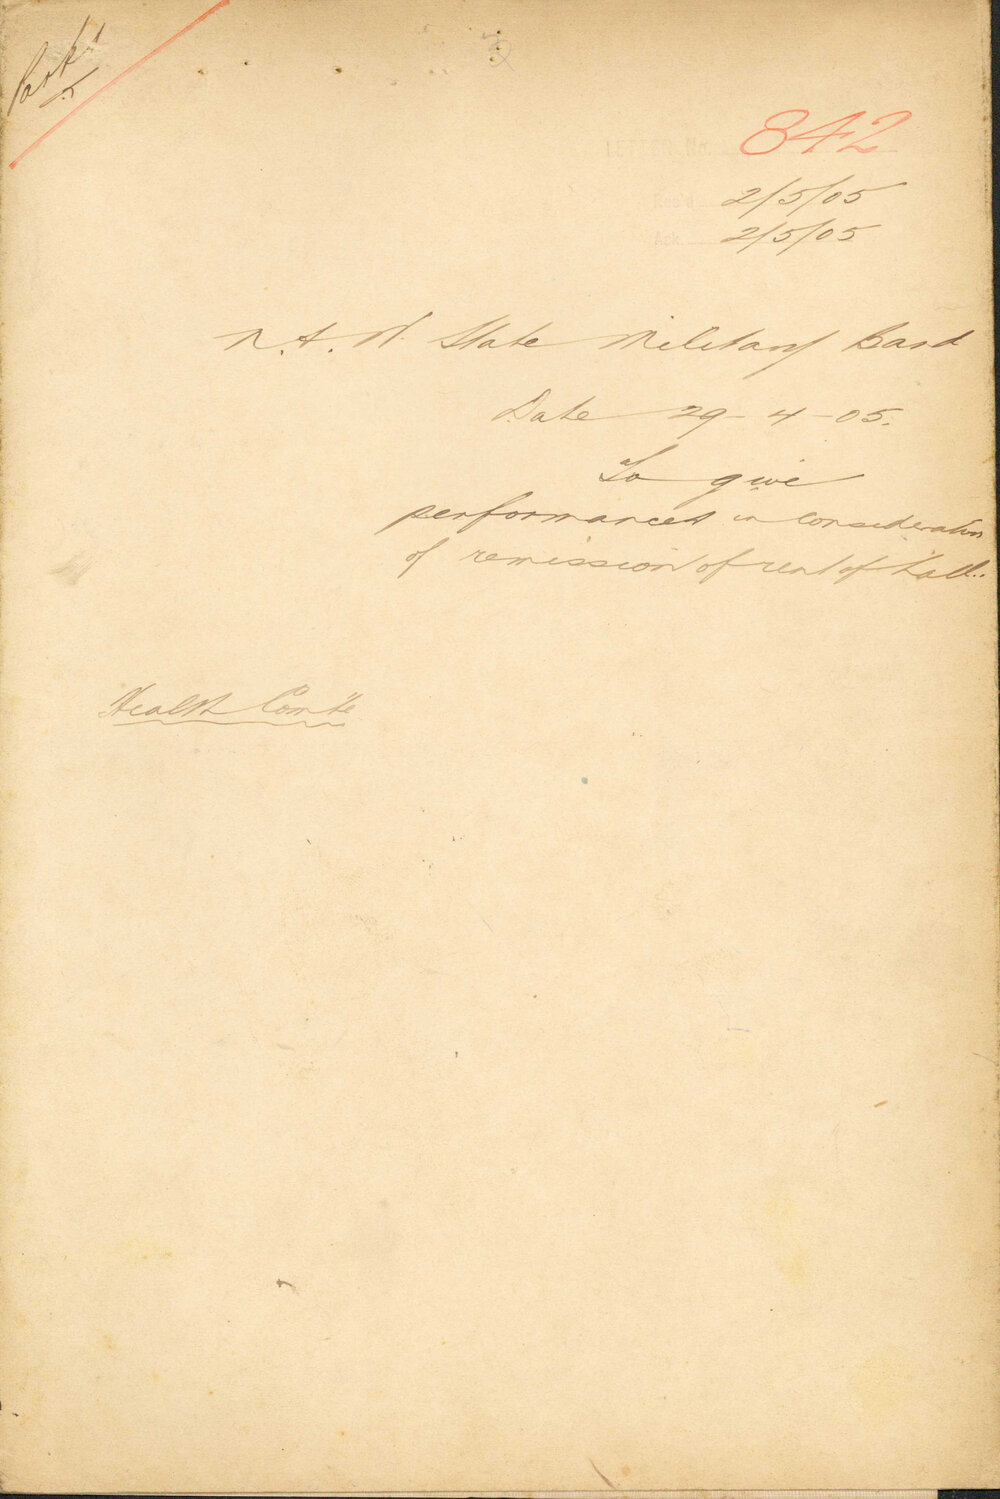 842
LETTER No.
Rec'd 2/5/05
Ack. 2/5/05
N.S.W. State Military Band
Date 29-4-05.
To give
performances in consideration
of remission of rent of Hall.
Health Comte